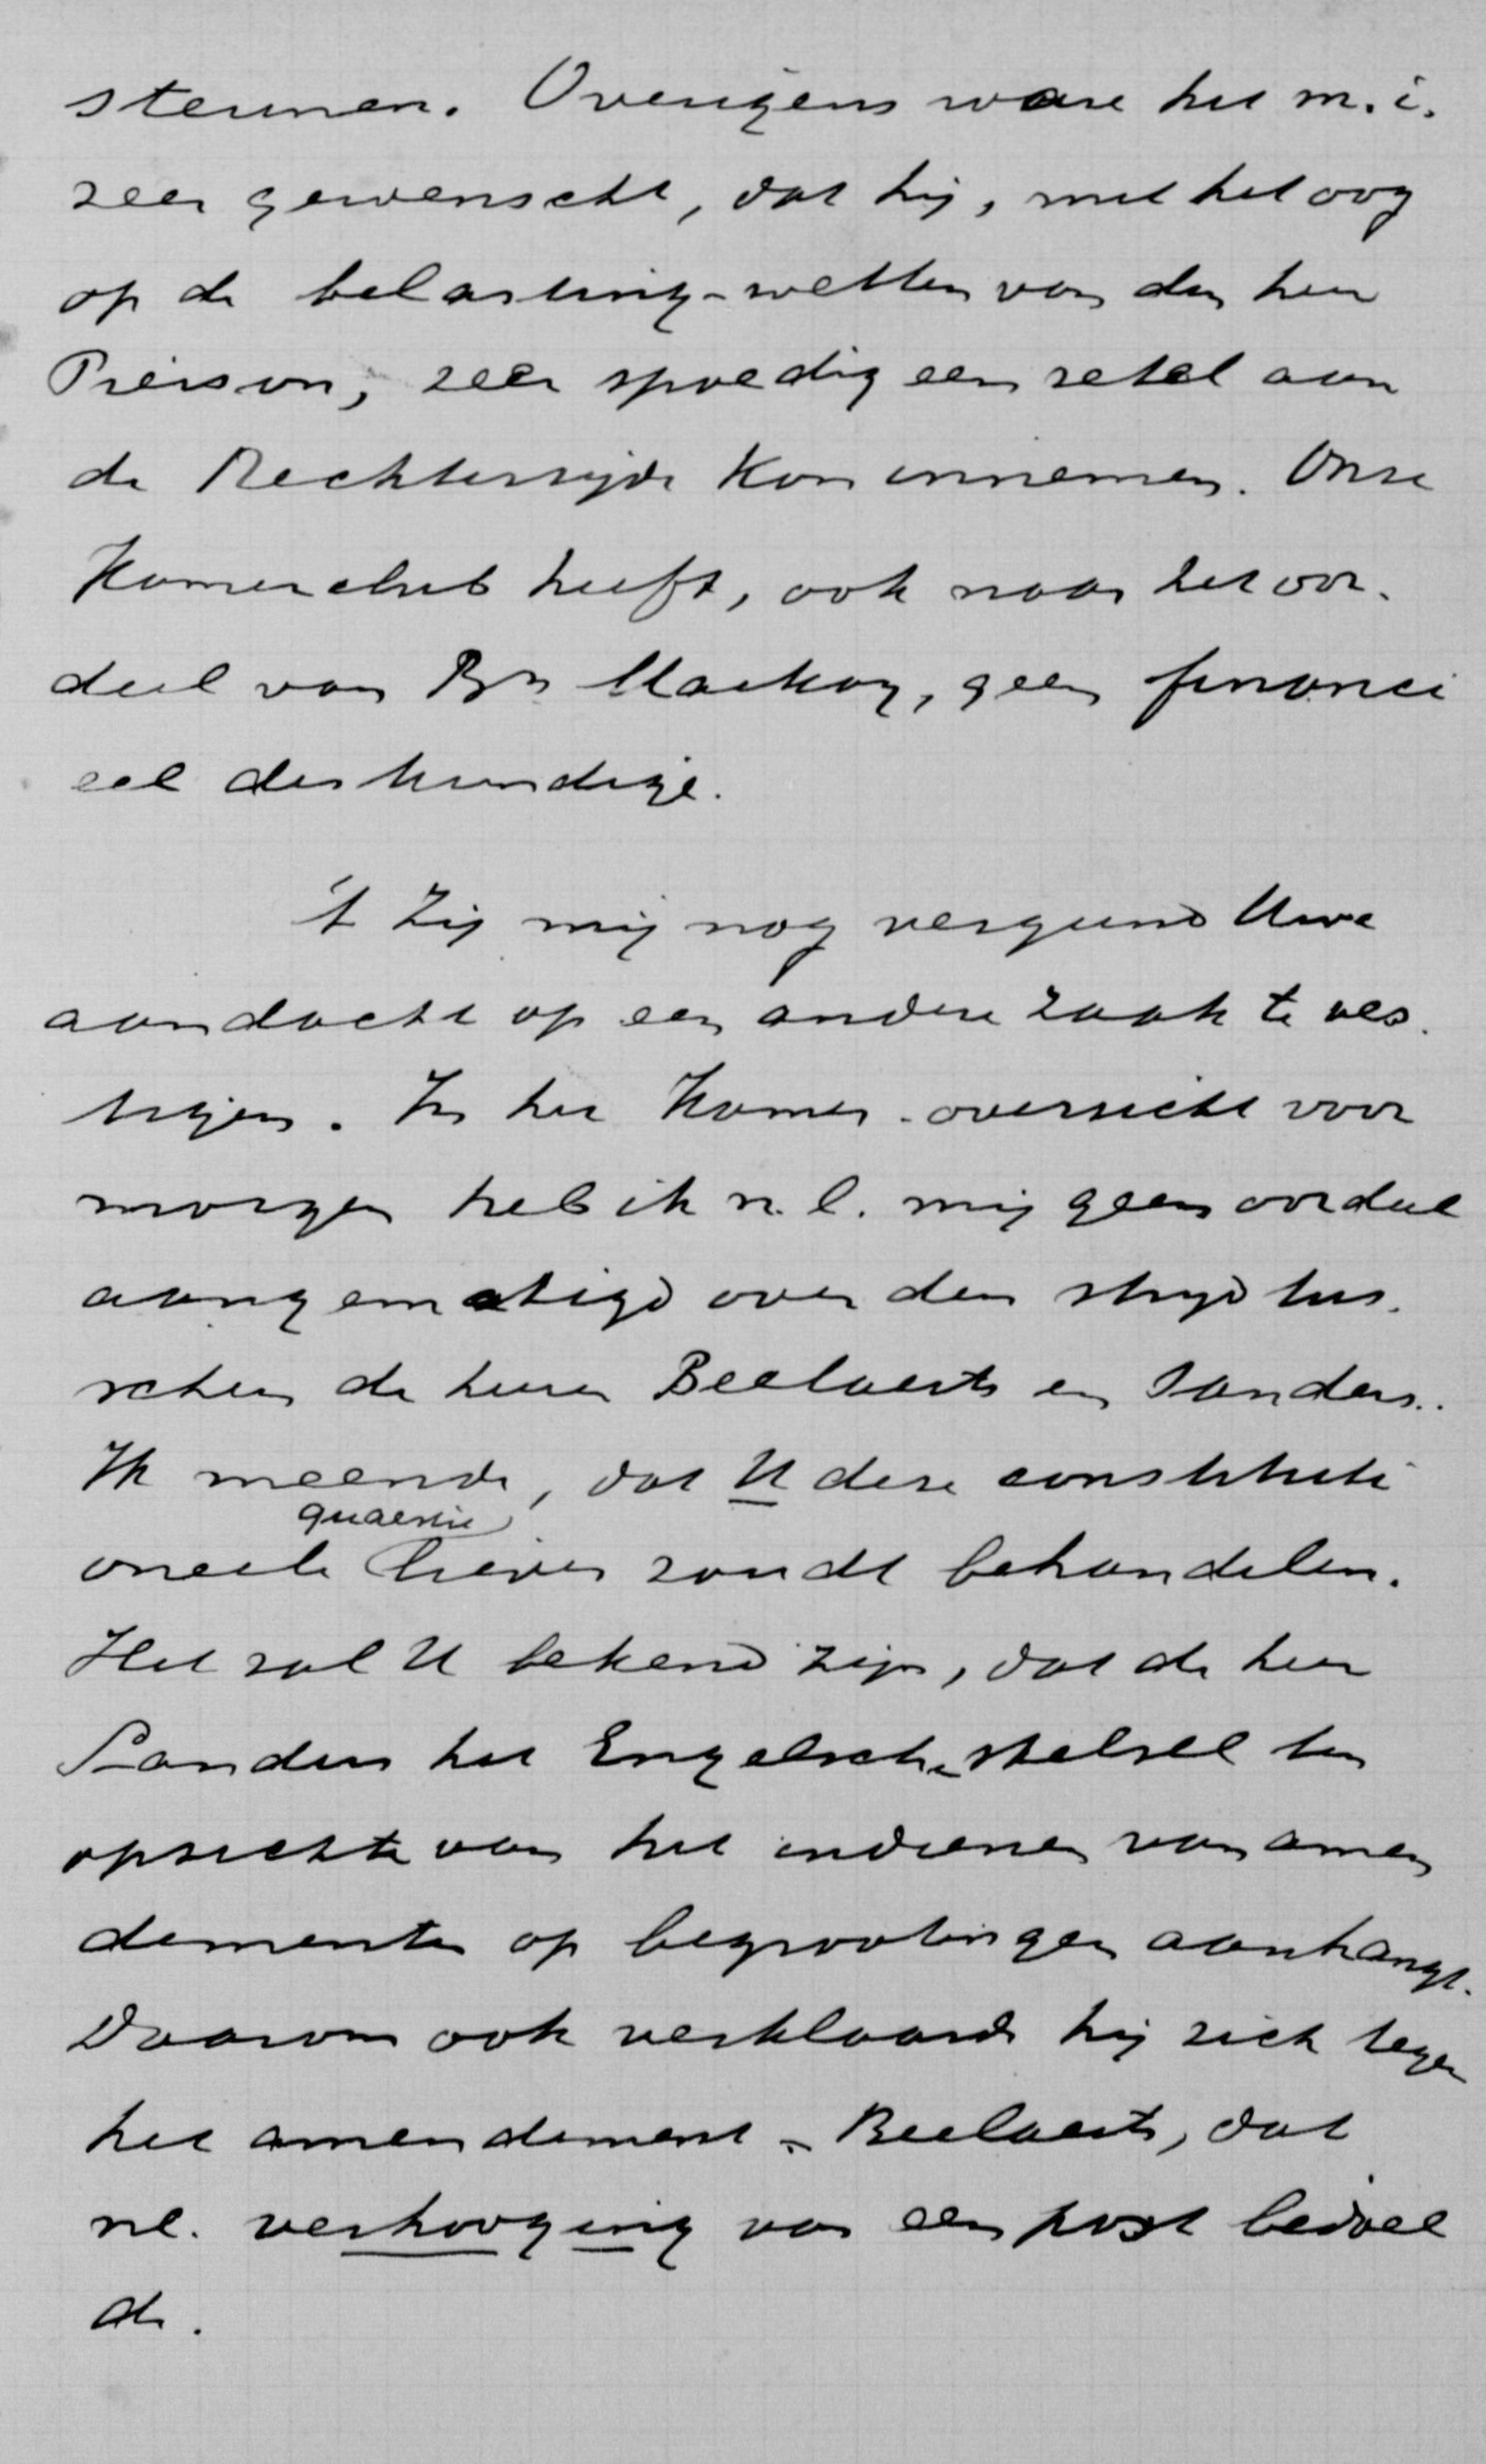 steunen. Overigens ware het m.i.
zeer gewenscht, dat hij, met het oog
op de belasting-wetten van den heer
Pierson, zeer spoedig een zetel aan
de Rechterzijde kon innemen. Onze
Kamerclub heeft, ook naar het oor-
deel van Bn Mackay, geen financi
eel deskundige.
't Zij mij nog vergund Uwe
aandacht op een andere zaak te ves-
tigen. In het Kamer-overzicht voor
morgen heb ik n.l. mij geen oordeel
aangematigd over den strijd tus-
schen de heeren Beelaerts en Sanders.
Ik meende, dat U deze constituti
quaestie
oneele liever zoudt behandelen.
Het zal U bekend zijn, dat de heer
Sanders het Engelsche stelsel ten
opzichte van het indienen van amen
dementen op begrootingen aanhangt.
Daarom ook verklaarde hij zich tegen
het amendement-Beelaerts, dat
nl. verhooging van een post bedoel
de.